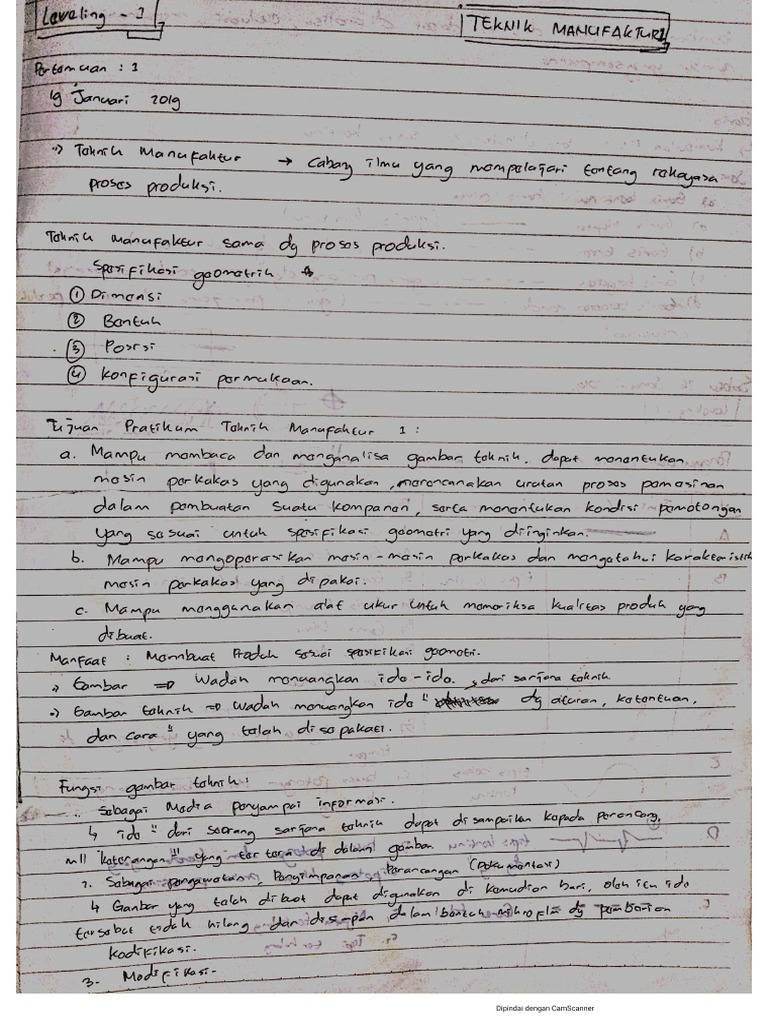 Leveling - 1
TEKNIK MANUFAKTUR 1
Pertemuan : 1
19 Januari 2019
-> Teknik Manufaktur → Cabang ilmu yang mempelajari tentang rekayasa
proses produksi.
Teknik manufaktur sama dg proses produksi.
Spesifikasi geometrik
① Dimensi
② Bentuk
③ Posisi
④ Konfigurasi permukaan.
Tujuan Pratikum Teknik Manufaktur 1 :
a. Mampu membaca dan menganalisa gambar teknik, dapat menentukan
mesin perkakas yang digunakan, merencanakan urutan proses pemesinan
dalam pembuatan suatu komponen, serta menentukan kondisi pemotongan
yang sesuai untuk spesifikasi geometri yang diinginkan.
b. Mampu mengoperasikan mesin-mesin perkakas dan mengetahui karakteristik
mesin perkakas yang dipakai.
c. Mampu menggunakan alat ukur untuk memeriksa kualitas produk yang
dibuat.
Manfaat : Membuat Produk sesuai spesifikasi geometri.
-> Gambar => Wadah menuangkan ide-ide. dari sarjana teknik
-> Gambar teknik => Wadah menuangkan ide" dg aturan, ketentuan,
dan cara" yang telah disepakati.
Fungsi gambar teknik :
sebagai Media penyampai informasi.
↳ ide" dari seorang sarjana teknik dapat disampaikan kepada perancang
mll keterangan" yang tertera di dalam gambar
2. Sebagai pengawetan, Penyimpanan Perancangan (Dokumentasi)
↳ Gambar yang telah dibuat dapat digunakan di kemudian hari, oleh itu ide
tersebut tidak hilang dan disimpan dalam bentuk mikrofilm dg pemberian
kodifikasi.
3. Modifikasi-
Dipindai dengan CamScanner